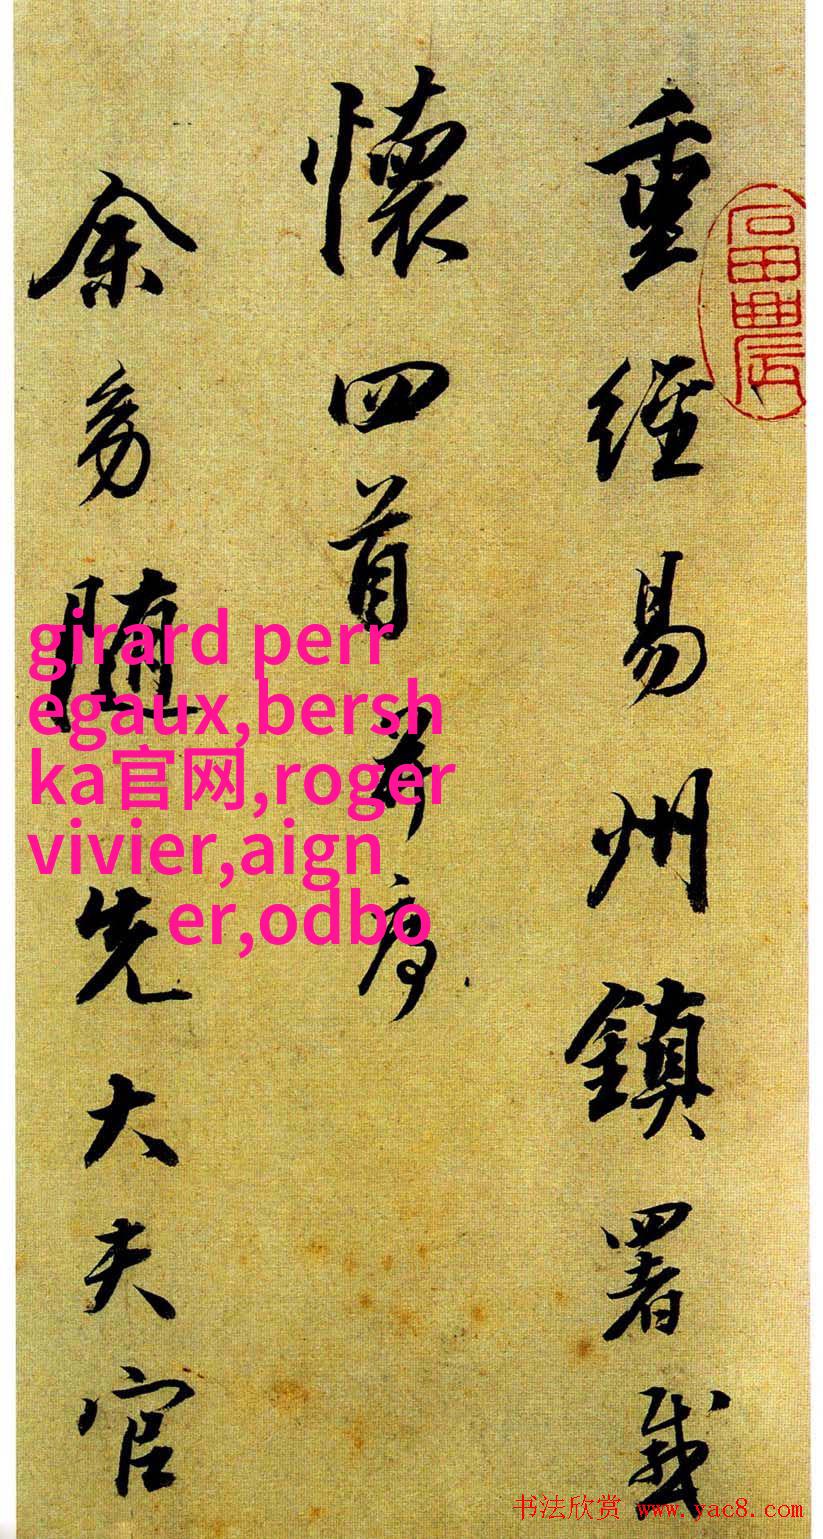 重經易州鎮署感
懷四首并序
余幼隨先大夫官
girard perr
egaux,bersh
ka官网,roger
vivier,aign
er,odbo
书法欣赏 www.yac8.com